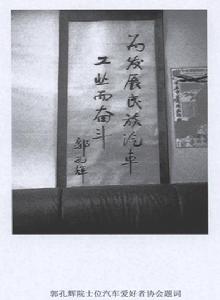 为发展民族汽车
工业而奋斗
郭孔辉
郭孔辉院士位汽车爱好者协会题词